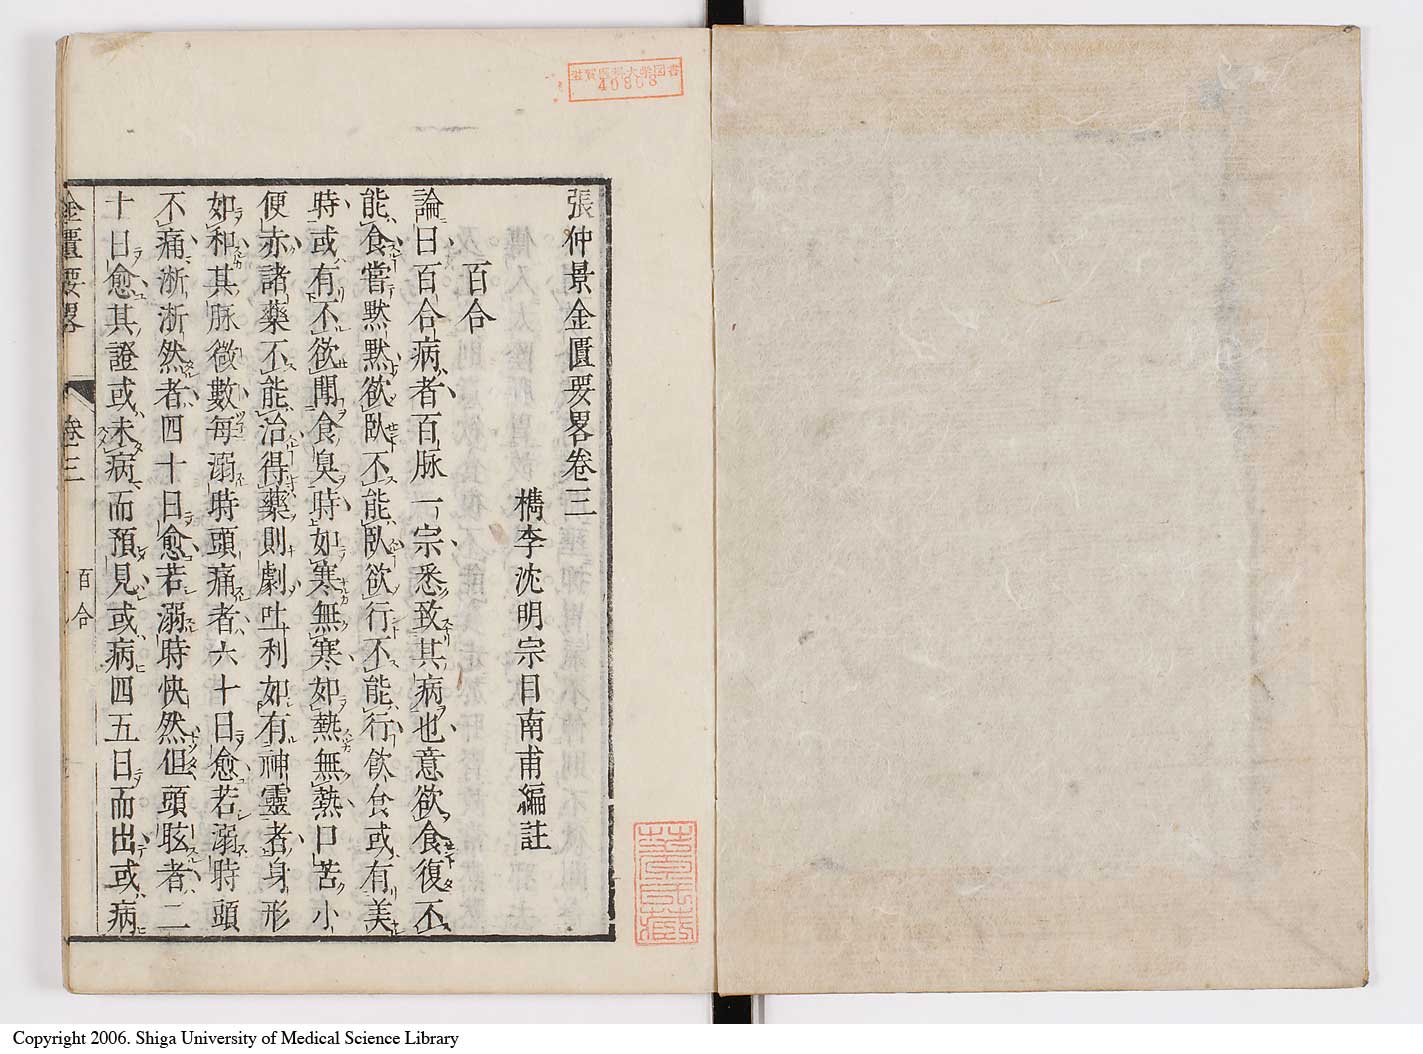 滋賀医科大学図書
40868
張仲景金匱要畧卷三
檇李沈明宗目南甫編註
百合
論曰百合病者百脉一宗悉致其病也意欲食復不
能食嘗黙黙欲臥不能臥欲行不能行飲食或有美
時或有不欲聞食臭時如寒無寒如熱無熱口苦小
便赤諸藥不能治得藥則劇吐利如有神靈者身形
如和其脉微數每溺時頭痛者六十日愈若溺時頭
不痛淅淅然者四十日愈若溺時快然但頭眩者二
十日愈其證或未病而預見或病四五日而出或病
金匱要畧 卷三 百合
Copyright 2006. Shiga University of Medical Science Library